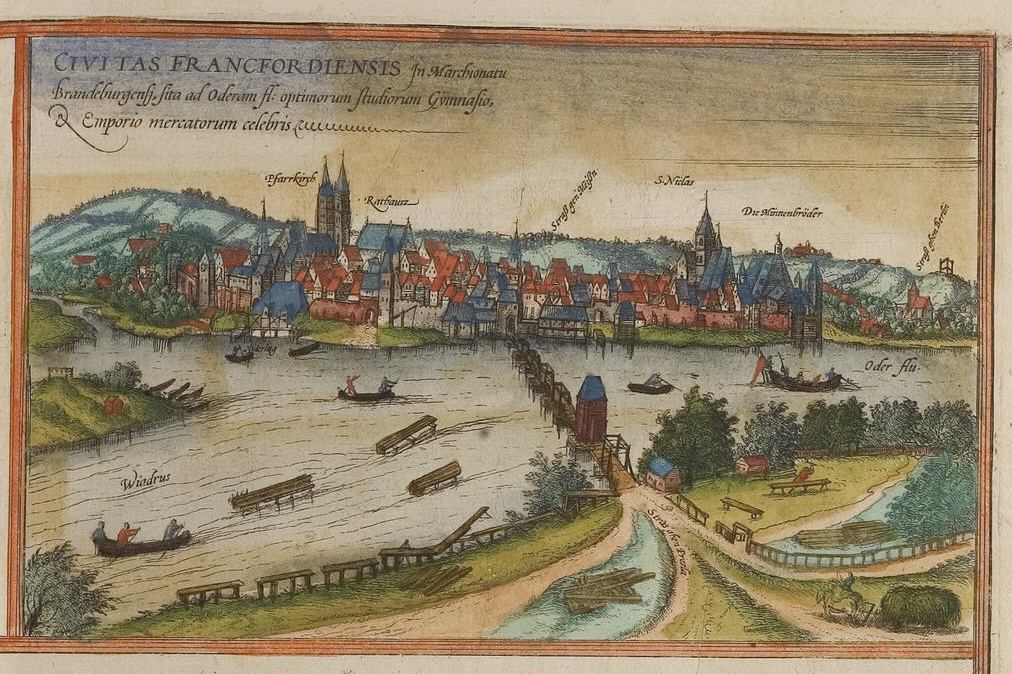 CIVITAS FRANCFORDIENSIS In Marchionatu
Brandeburgensi, sita ad Oderam fl: optimorum studiorum Gymnasio,
& Emporio mercatorum celebris
Pfarrkirch
Rathausz
Straß gen Meißn
S. Niclas
Die Minnenbröder
Straß ghen Berlin
Oder flu.
Wiadrus
Stras ghen